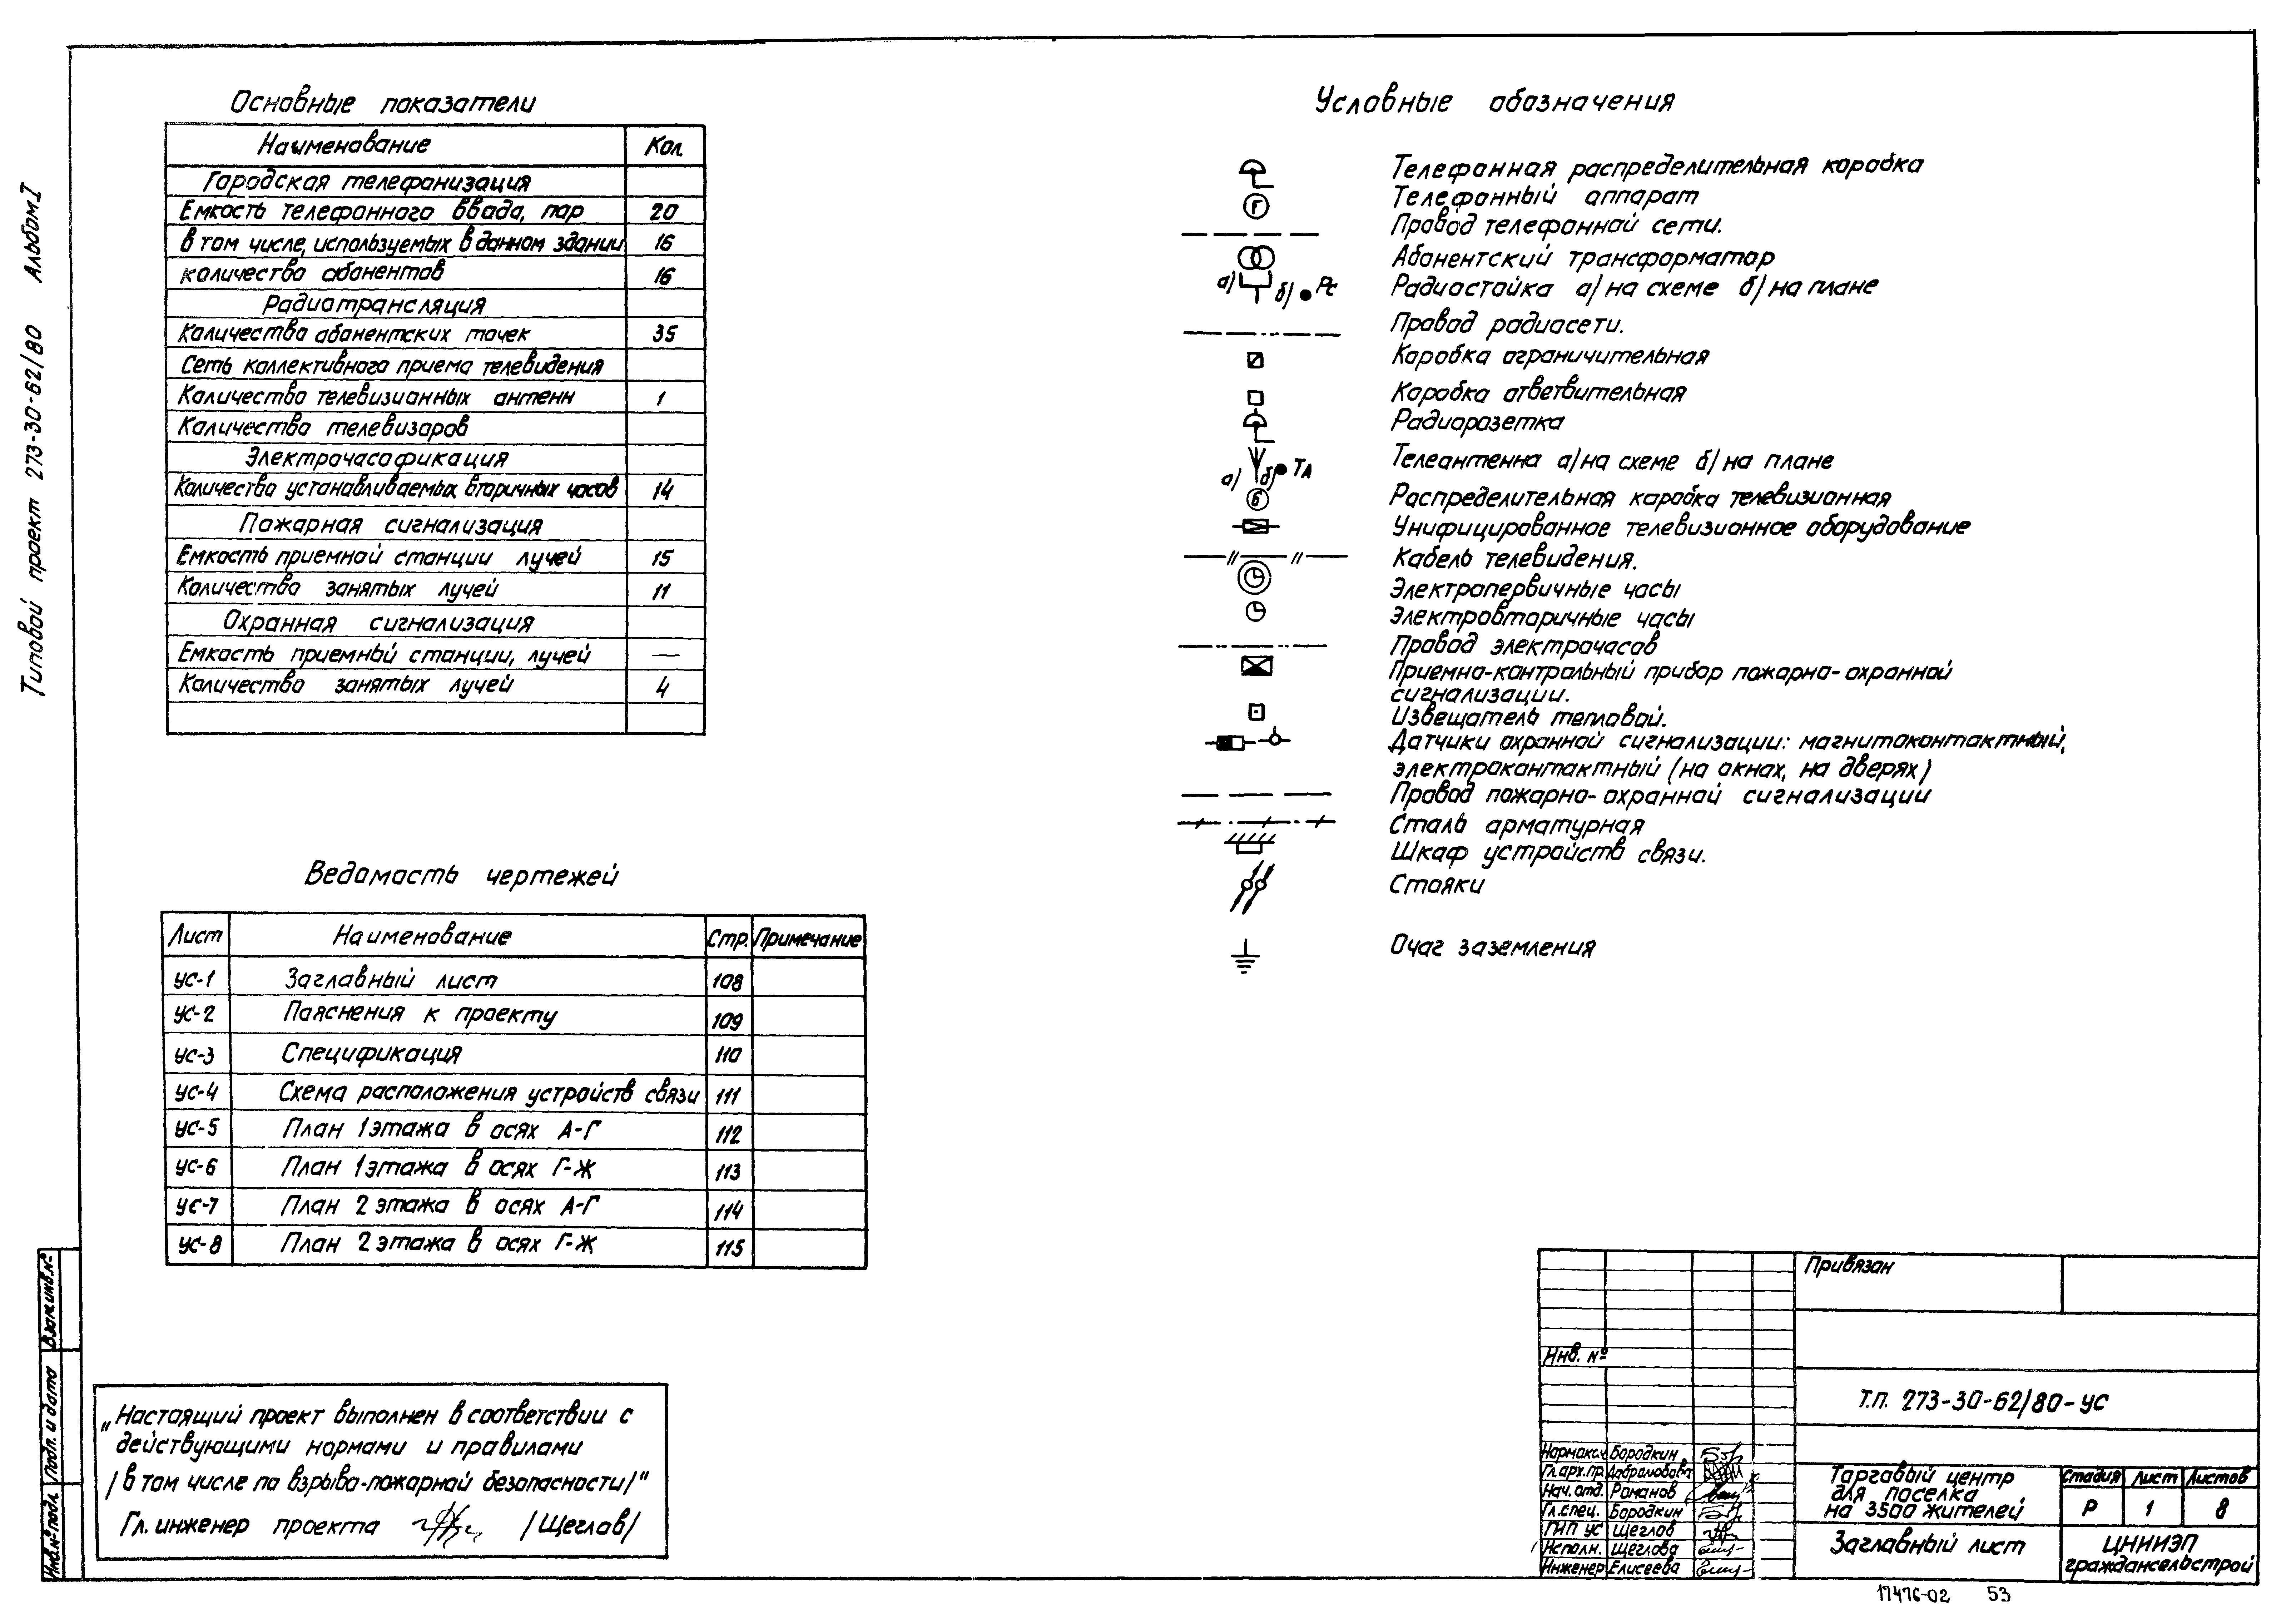 Типовой проект 273-30-62/80 Альбом I
Основные показатели
Наименование Кол.
Городская телефонизация
Емкость телефонного ввода, пар 20
в том числе, используемых в данном здании 16
количество абонентов 16
Радиотрансляция
Количество абонентских точек 35
Сеть коллективного приема телевидения
Количество телевизионных антенн 1
Количество телевизоров
Электрочасофикация
Количество устанавливаемых вторичных часов 14
Пожарная сигнализация
Емкость приемной станции лучей 15
Количество занятых лучей 11
Охранная сигнализация
Емкость приемный станции, лучей —
Количество занятых лучей 4
Ведомость чертежей
Лист Наименование Стр. Примечание
УС-1 Заглавный лист 108
УС-2 Пояснения к проекту 109
УС-3 Спецификация 110
УС-4 Схема расположения устройств связи 111
УС-5 План 1 этажа в осях А-Г 112
УС-6 План 1 этажа в осях Г-Ж 113
УС-7 План 2 этажа в осях А-Г 114
УС-8 План 2 этажа в осях Г-Ж 115
„Настоящий проект выполнен в соответствии с
действующими нормами и правилами
/в том числе по взрыво-пожарной безопасности/"
Гл. инженер проекта /Щеглов/
Условные обозначения
Телефонная распределительная коробка
Г Телефонный аппарат
Провод телефонной сети.
Абонентский трансформатор
а) б) Рс Радиостойка а) на схеме б) на плане
Провод радиосети.
Коробка ограничительная
Коробка ответвительная
Радиорозетка
а) б) ТА Телеантенна а) на схеме б) на плане
6 Распределительная коробка телевизионная
Унифицированное телевизионное оборудование
Кабель телевидения.
Электропервичные часы
Электровторичные часы
Провод электрочасов
Приемно-контрольный прибор пожарно-охранной
сигнализации.
Извещатель тепловой.
Датчики охранной сигнализации: магнитоконтактный,
электроконтактный (на окнах, на дверях)
Провод пожарно-охранной сигнализации
Сталь арматурная
Шкаф устройств связи.
Стояки
Очаг заземления
Взам.инв.№
Подп. и дата
Инв.№ подл.
Привязан
Инв. №
Т.П. 273-30-62/80-УС
Нормокон. Бородкин
Гл.арх.пр. Добролюбова
Нач. отд. Романов
Гл.спец. Бородкин
ГИП УС Щеглов
Исполн. Щеглова
Инженер Елисеева
Торговый центр
для поселка
на 3500 жителей
Стадия Лист Листов
Р 1 8
Заглавный лист
ЦНИИЭП
граждансельстрой
17476-02 53